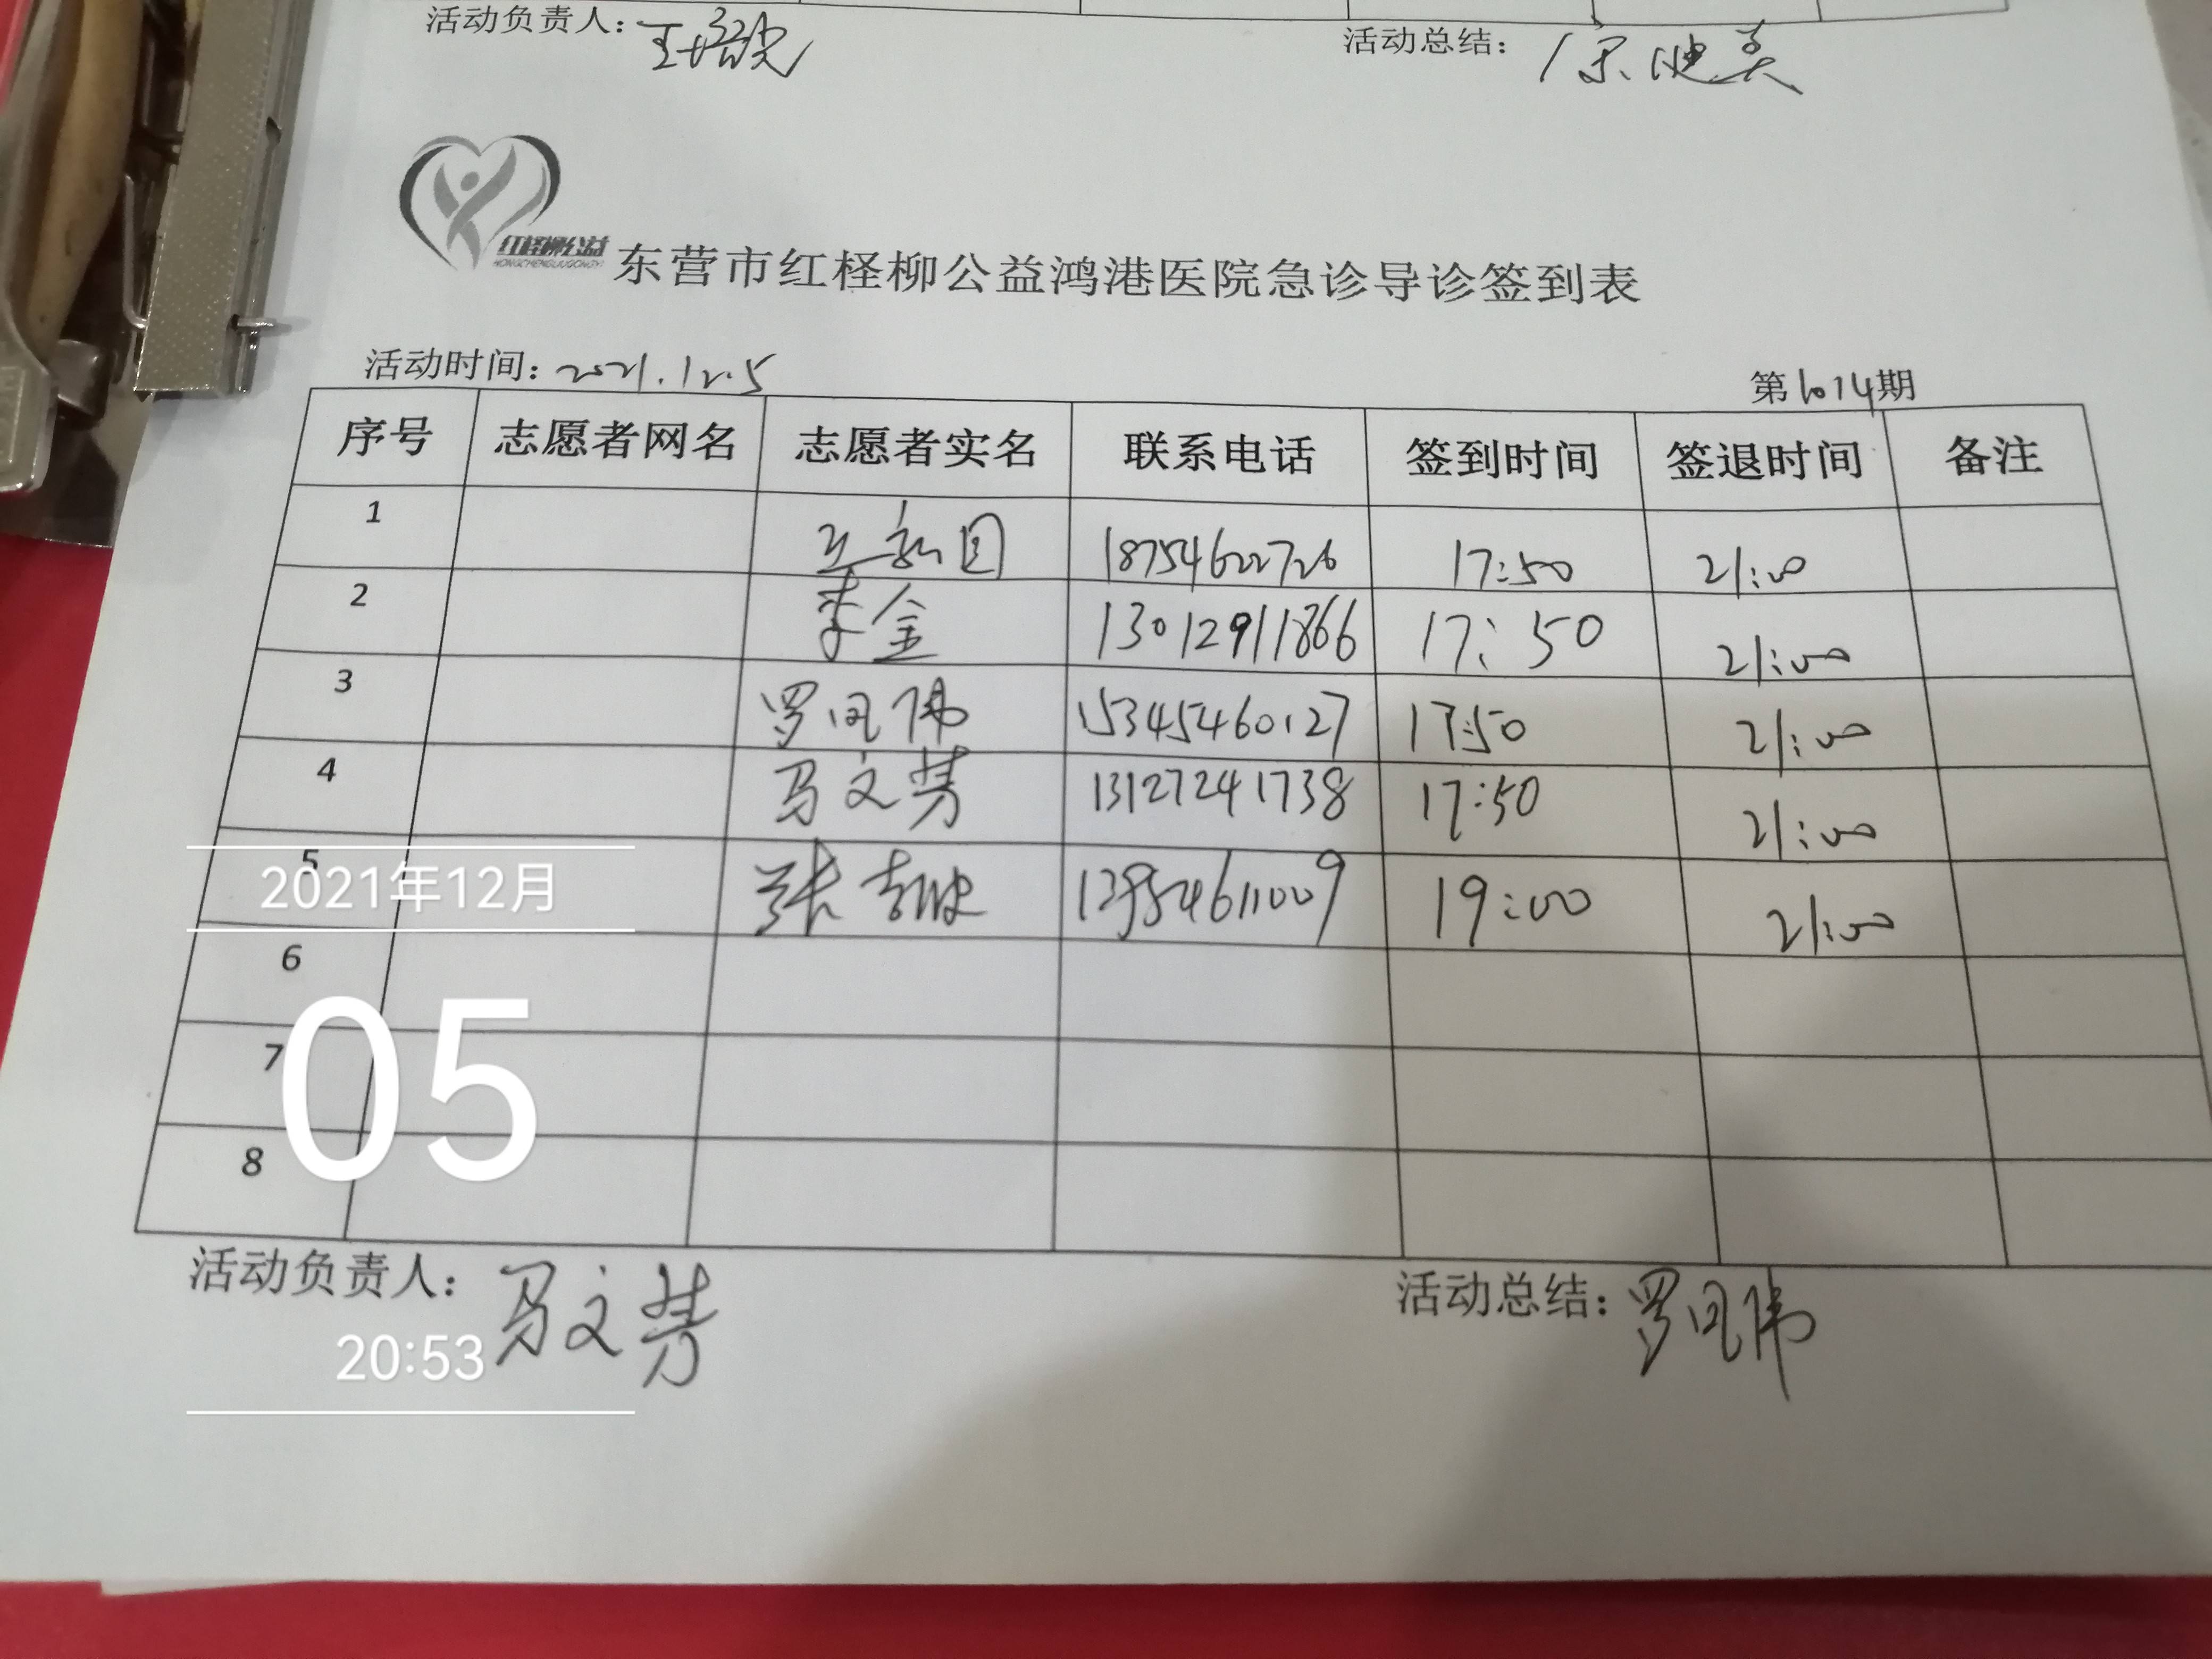 活动负责人: 活动总结:
红柽柳公益
HONGCHENGLIUGONGYI
东营市红柽柳公益鸿港医院急诊导诊签到表
活动时间: 2021.12.5 第1014期
序号 志愿者网名 志愿者实名 联系电话 签到时间 签退时间 备注
1 18754622726 17:50 21:00
2 李金 13012911866 17:50 21:00
3 罗凤伟 15345460127 17:50 21:00
4 马文芳 13127241738 17:50 21:00
5 张 13954611009 19:00 21:00
6
7
8
活动负责人: 马文芳 活动总结: 罗凤伟
2021年12月
05
20:53